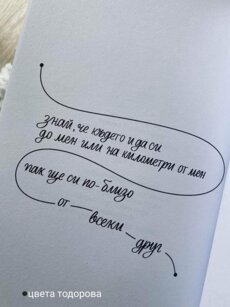 знай, че където и да си
до мен или на километри от мен
пак ще си по-близо
от — всеки — друг
цвета тодорова